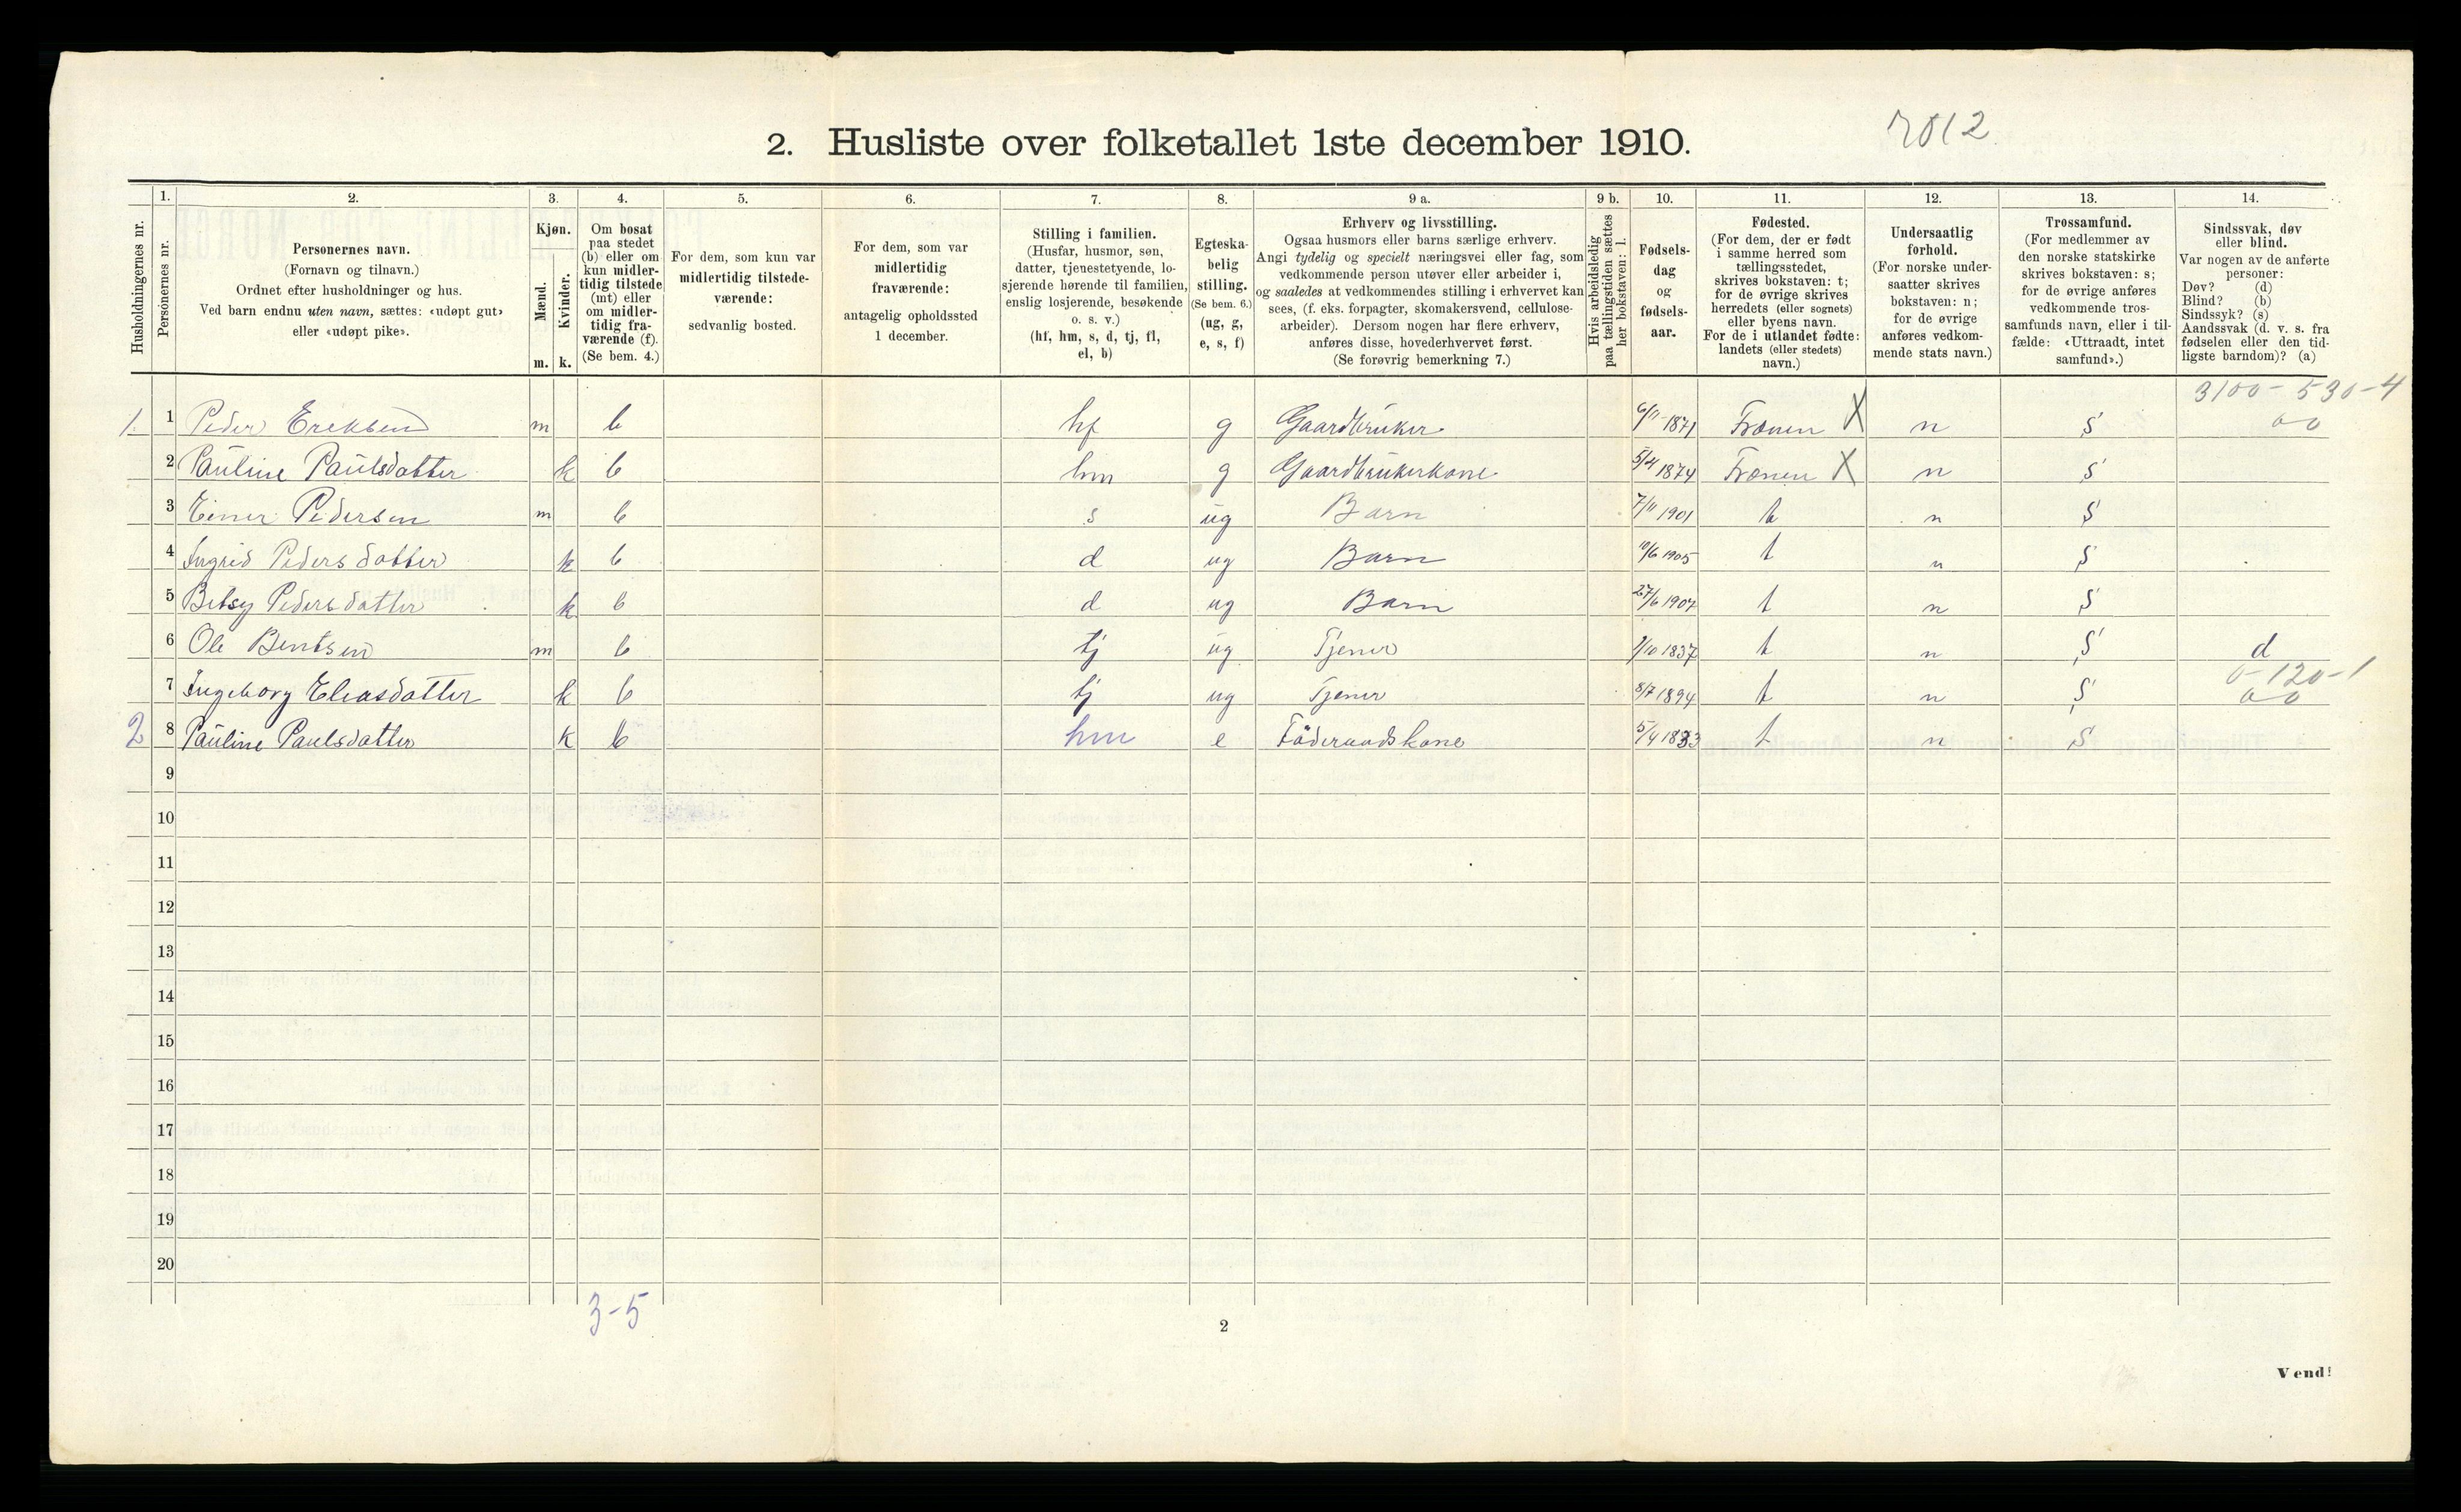 2. Husliste over folketallet 1ste december 1910.
Husholdningernes nr.
1.
Personernes nr.
2.
Personernes navn.
(Fornavn og tilnavn.)
Ordnet efter husholdninger og hus.
Ved barn endnu uten navn, sættes: «udøpt gut»
eller «udøpt pike».
3.
Kjøn.
Mænd.
m.
Kvinder.
k.
4.
Om bosat
paa stedet
(b) eller om
kun midler-
tidig tilstede
(mt) eller
om midler-
tidig fra-
værende (f).
(Se bem. 4.)
5.
For dem, som kun var
midlertidig tilstede-
værende:
sedvanlig bosted.
6.
For dem, som var
midlertidig
fraværende:
antagelig opholdssted
1 december.
7.
Stilling i familien.
(Husfar, husmor, søn,
datter, tjenestetyende, lo-
sjerende hørende til familien,
enslig losjerende, besøkende
o. s. v.)
(hf, hm, s, d, tj, fl,
el, b)
8.
Egteska-
belig
stilling.
(Se bem. 6.)
(ug, g,
e, s, f)
9 a.
Erhverv og livsstilling.
Ogsaa husmors eller barns særlige erhverv.
Angi tydelig og specielt næringsvei eller fag, som
vedkommende person utøver eller arbeider i,
og saaledes at vedkommendes stilling i erhvervet kan
sees, (f. eks. forpagter, skomakersvend, cellulose-
arbeider). Dersom nogen har flere erhverv,
anføres disse, hovederhvervet først.
(Se forøvrig bemerkning 7.)
9 b.
Hvis arbeidsledig
paa tællingstiden sættes
her bokstaven: l.
10.
Fødsels-
dag
og
fødsels-
aar.
11.
Fødested.
(For dem, der er født
i samme herred som
tællingsstedet,
skrives bokstaven: t;
for de øvrige skrives
herredets (eller sognets)
eller byens navn.
For de i utlandet fødte:
landets (eller stedets)
navn.)
12.
Undersaatlig
forhold.
(For norske under-
saatter skrives
bokstaven: n;
for de øvrige
anføres vedkom-
mende stats navn.)
13.
Trossamfund.
(For medlemmer av
den norske statskirke
skrives bokstaven: s;
for de øvrige anføres
vedkommende tros-
samfunds navn, eller i til-
fælde: «Uttraadt, intet
samfund».)
14.
Sindssvak, døv
eller blind.
Var nogen av de anførte
personer:
Døv? (d)
Blind? (b)
Sindssyk? (s)
Aandssvak (d. v. s. fra
fødselen eller den tid-
ligste barndom)? (a)
3100-530-4
1. 1 Peder Eriksen m b hf g Gaardbruker 6/11 1871 Frænen X n S 0-0
2 Pauline Paulsdatter k b hm g Gaardbrukerkone 5/4 1874 Frænen X n S
3 Einer Pedersen m b s ug Barn 7/11 1901 t n S
4 Ingrid Pedersdatter k b d ug Barn 10/6 1905 t n S
5 Betsy Pedersdatter k b d ug Barn 27/6 1907 t n S
6 Ole Bentsen m b tj ug Tjener 7/10 1837 t n S d
0-120-1
7 Ingeborg Eleasdatter k b tj ug Tjener 8/7 1894 t n S 0-0
2 8 Pauline Paulsdatter k b hm e Föderaadskone 5/4 1833 t n S
9
10
11
12
13
14
15
16
17
18
19
20
3-5
2
Vend!